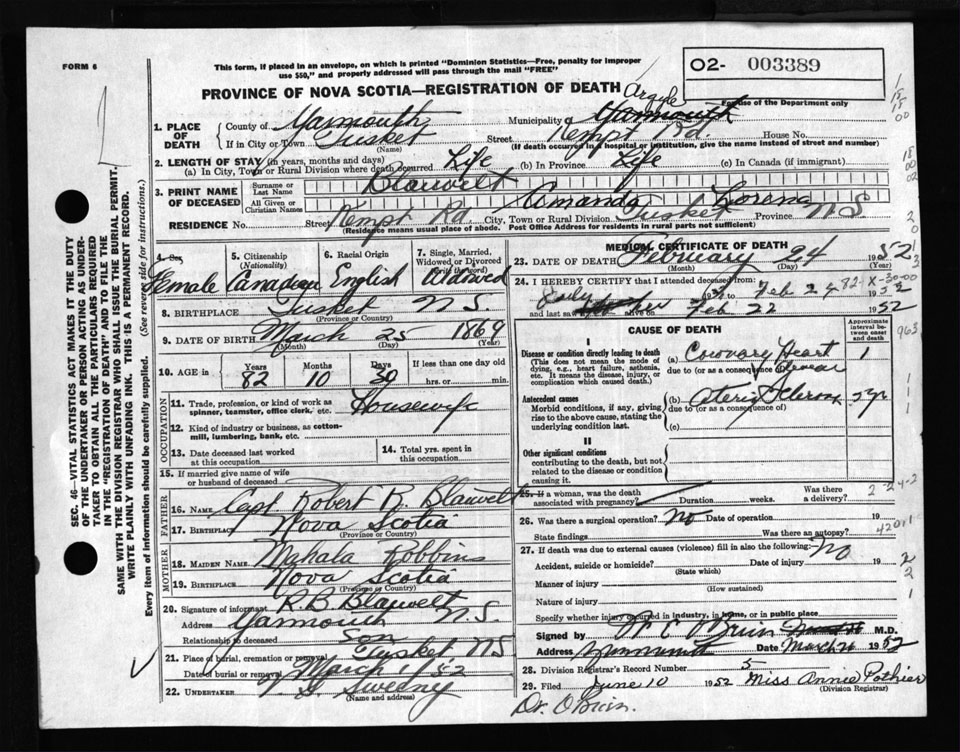 FORM 6
This form, if placed in an envelope, on which is printed "Dominion Statistics—Free, penalty for improper
use $50," and properly addressed will pass through the mail "FREE"
02- 003389
For use of the Department only
PROVINCE OF NOVA SCOTIA—REGISTRATION OF DEATH
Argyle
1. PLACE OF DEATH
County of Yarmouth Municipality of Yarmouth
If in City or Town Tusket Street Kempt Rd. House No.
(Name) (If death occurred in a hospital or institution, give the name instead of street and number)
2. LENGTH OF STAY (in years, months and days)
(a) In City, Town or Rural Division where death occurred Life (b) In Province Life (c) In Canada (if immigrant)
3. PRINT NAME OF DECEASED
Surname or Last Name Blauvelt
All Given or Christian Names Amanda Lorena
RESIDENCE No. Street Kempt Rd. City, Town or Rural Division Tusket Province N S
(Residence means usual place of abode. Post Office Address for residents in rural parts not sufficient)
4. Sex Female
5. Citizenship (Nationality) Canadian
6. Racial Origin English
7. Single, Married, Widowed or Divorced (Write the word) Widowed
8. BIRTHPLACE Tusket N S
(Province or Country)
9. DATE OF BIRTH March 25 1869
(Month) (Day) (Year)
10. AGE in Years Months Days If less than one day old
82 10 30 hrs. or min.
OCCUPATION
11. Trade, profession, or kind of work as spinner, teamster, office clerk, etc. Housewife
12. Kind of industry or business, as cotton-mill, lumbering, bank, etc.
13. Date deceased last worked at this occupation
14. Total yrs. spent in this occupation
15. If married give name of wife or husband of deceased
FATHER
16. NAME Capt Robert R. Blauvelt
17. BIRTHPLACE Nova Scotia
(Province or Country)
MOTHER
18. MAIDEN NAME Mahala Robbins
19. BIRTHPLACE Nova Scotia
(Province or Country)
20. Signature of informant R. B. Blauvelt
Address Yarmouth N.S.
Relationship to deceased Son
21. Place of burial, cremation or removal Tusket NS
Date of burial or removal March 1 / 52
22. UNDERTAKER Sweeny
(Name and address)
MEDICAL CERTIFICATE OF DEATH
23. DATE OF DEATH February 24 1952
(Month) (Day) (Year)
24. I HEREBY CERTIFY that I attended deceased from:
Feb 24 1952
and last saw alive on Feb 22 1952
CAUSE OF DEATH
Approximate interval between onset and death
I
Disease or condition directly leading to death
(This does not mean the mode of dying, e.g., heart failure, asthenia, etc. It means the disease, injury, or complication which caused death.)
(a) Coronary Heart 1
due to (or as a consequence of) Disease
Antecedent causes
Morbid conditions, if any, giving rise to the above cause, stating the underlying condition last.
(b) Arterio Sclerosis 5 yr
due to (or as a consequence of)
(c)
II
Other significant conditions
contributing to the death, but not related to the disease or condition causing it.
25. If a woman, was the death associated with pregnancy? Duration weeks. Was there a delivery?
2-24-2
26. Was there a surgical operation? No Date of operation 19
State findings Was there an autopsy?
42011
27. If death was due to external causes (violence) fill in also the following: No
Accident, suicide or homicide? Date of injury 19
(State which)
Manner of injury
(How sustained)
Nature of injury
Specify whether injury occurred in industry, in home, or in public place
Signed by W C O'Brien M.D.
Address Yarmouth Date March 1952
28. Division Registrar's Record Number 5
29. Filed June 10 1952 Miss Annie Pothier
(Division Registrar)
Dr. O'Brien.
SEC. 46—VITAL STATISTICS ACT MAKES IT THE DUTY
OF THE UNDERTAKER OR PERSON ACTING AS UNDER-
TAKER TO OBTAIN ALL THE PARTICULARS REQUIRED
IN THE "REGISTRATION OF DEATH" AND TO FILE THE
SAME WITH THE DIVISION REGISTRAR WHO SHALL ISSUE THE BURIAL PERMIT.
WRITE PLAINLY WITH UNFADING INK. THIS IS A PERMANENT RECORD.
Every item of information should be carefully supplied. (See reverse side for instructions.)